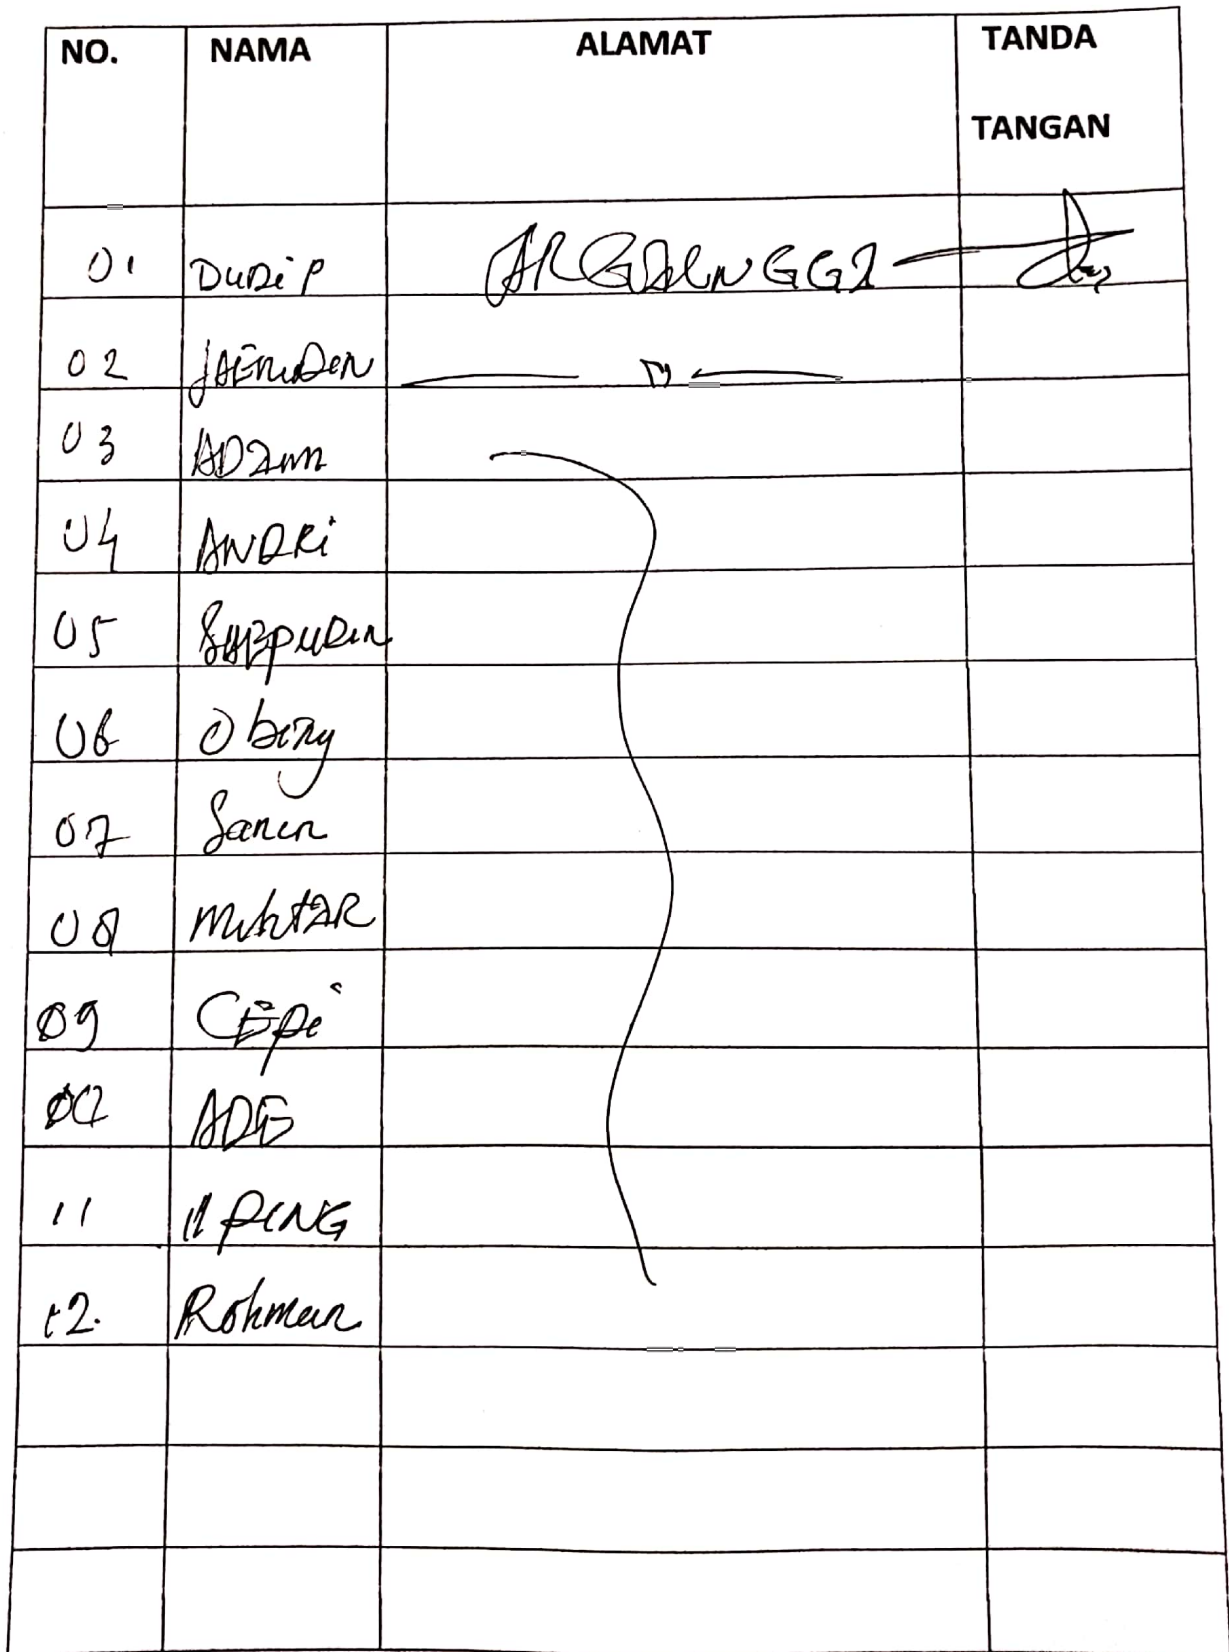 NO. NAMA ALAMAT TANDA TANGAN
01 DUDi P ARGALINGGA
02 JAENUDEN
03
04 ANDRi
05 SAEPUDIN
06 Obing
07 Sanin
08 MUhtAR
09 CEpi
ADE
11
12. Rohman